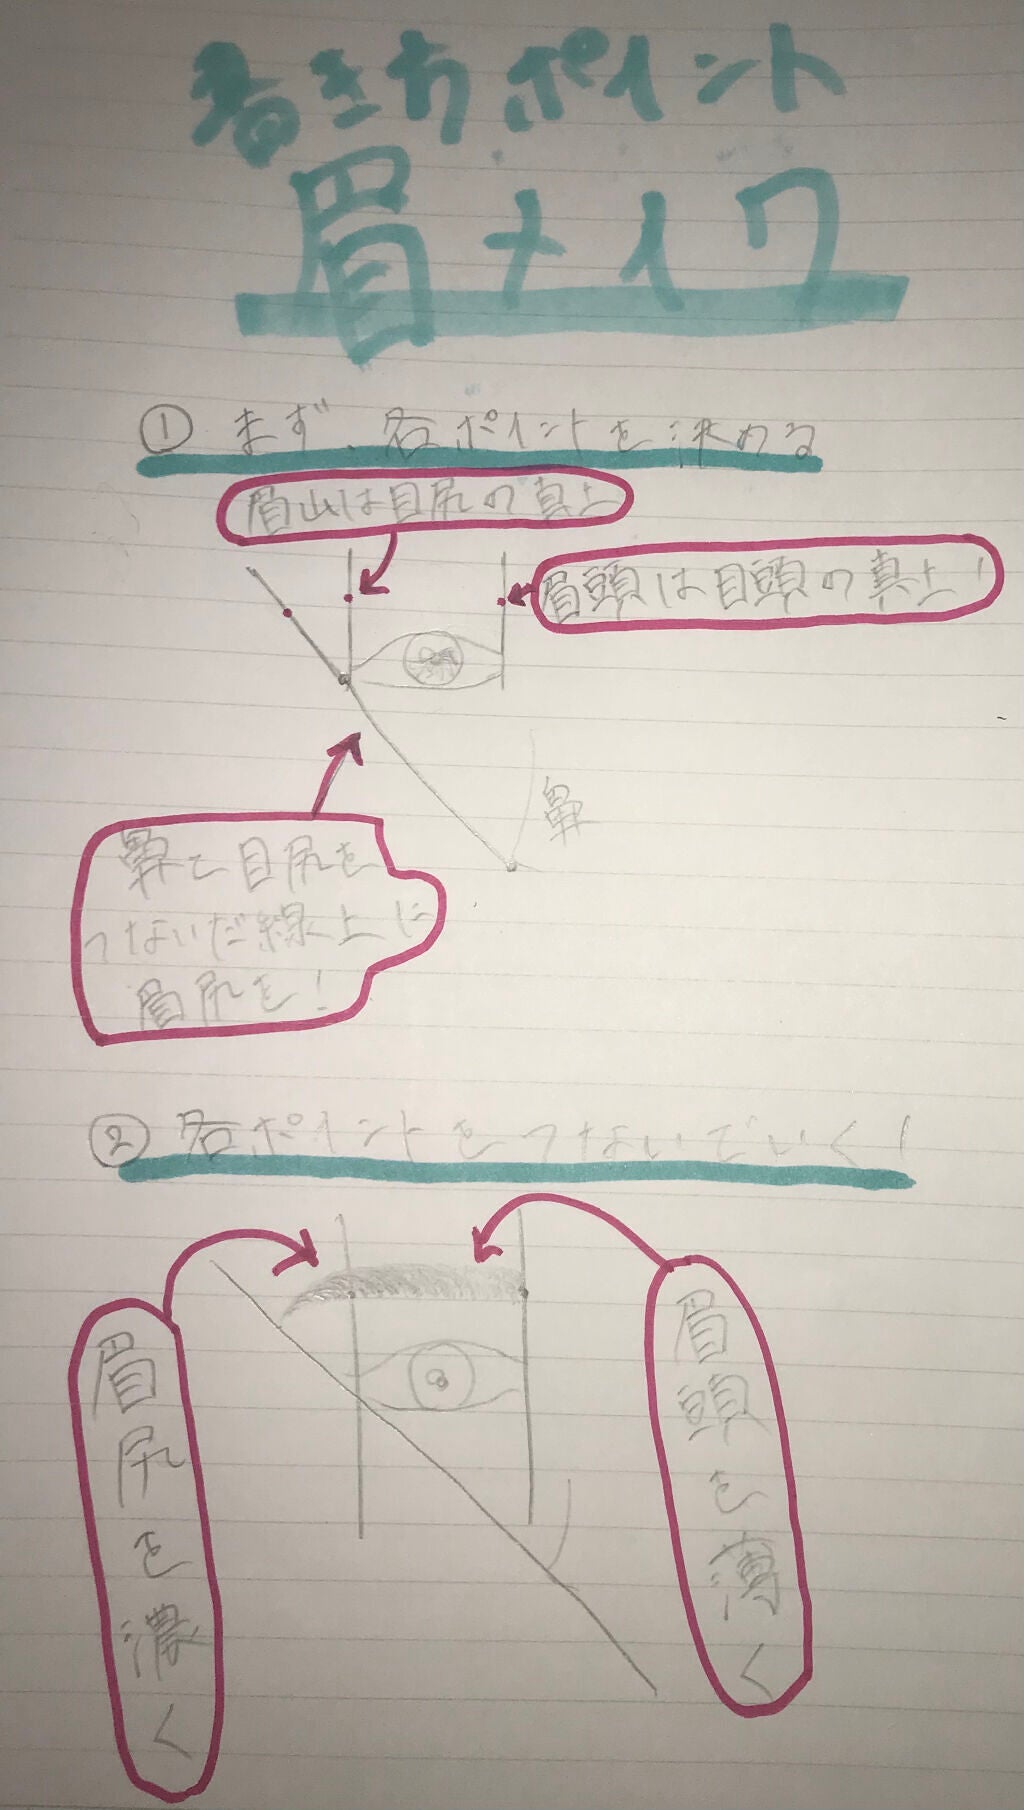 書き方ポイント
眉メイク
① まず、各ポイントを決める
眉山は目尻の真上
眉頭は目頭の真上！
鼻
鼻と目尻を
つないだ線上に
眉尻を！
② 各ポイントをつないでいく！
眉尻を濃く
眉頭を薄く